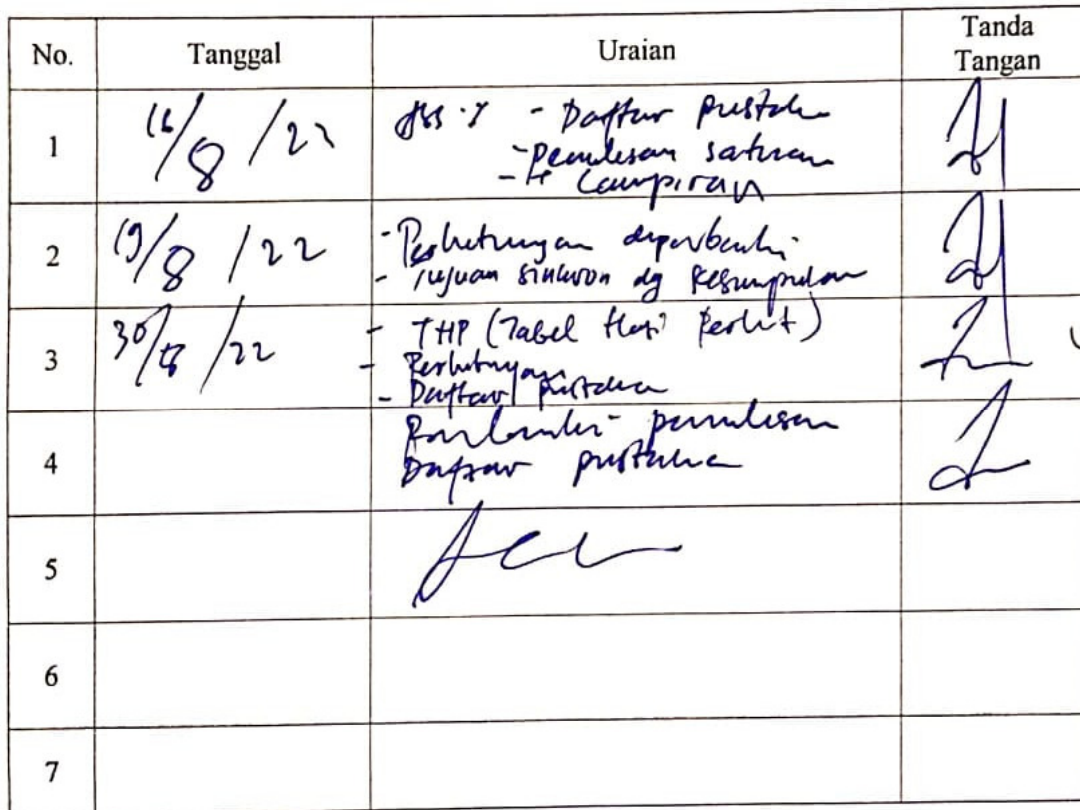 No. Tanggal Uraian Tanda
Tangan
1 16/8/22 - Daftar pustaka
- Penulisan satuan
- Lampiran
2 19/8/22 - Perhitungan diperbaiki
- Tujuan sinkron dg kesimpulan
3 30/8/22 - THP (Tabel Hasil Perhit)
- Perhitungan
- Daftar pustaka
4 Perbaiki penulisan
Daftar pustaka
5 Acc
6
7